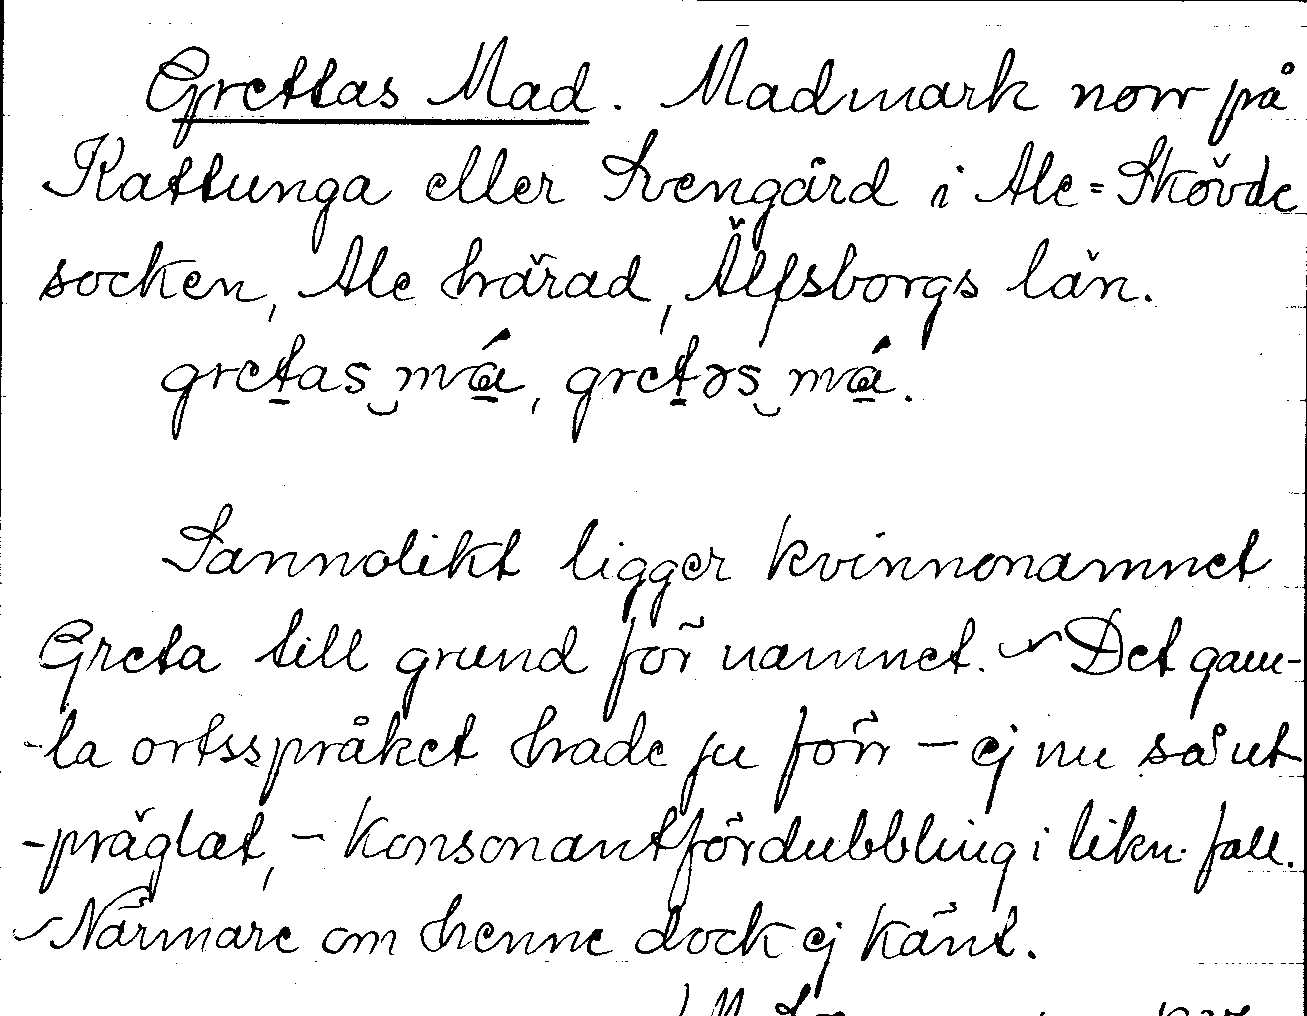 Grettas Mad. Madmark norr på
Kattunga eller Svengård i Ale=Skövde
socken, Ale härad, Älfsborgs län.
gretas må, gretəs må.
Sannolikt ligger kvinnonamnet
Greta till grund för namnet. – Det gam-
-la ortsspråket hade ju förr – ej nu så ut-
-präglat, – konsonantfördubbling i likn. fall.
– Närmare om henne dock ej känt.